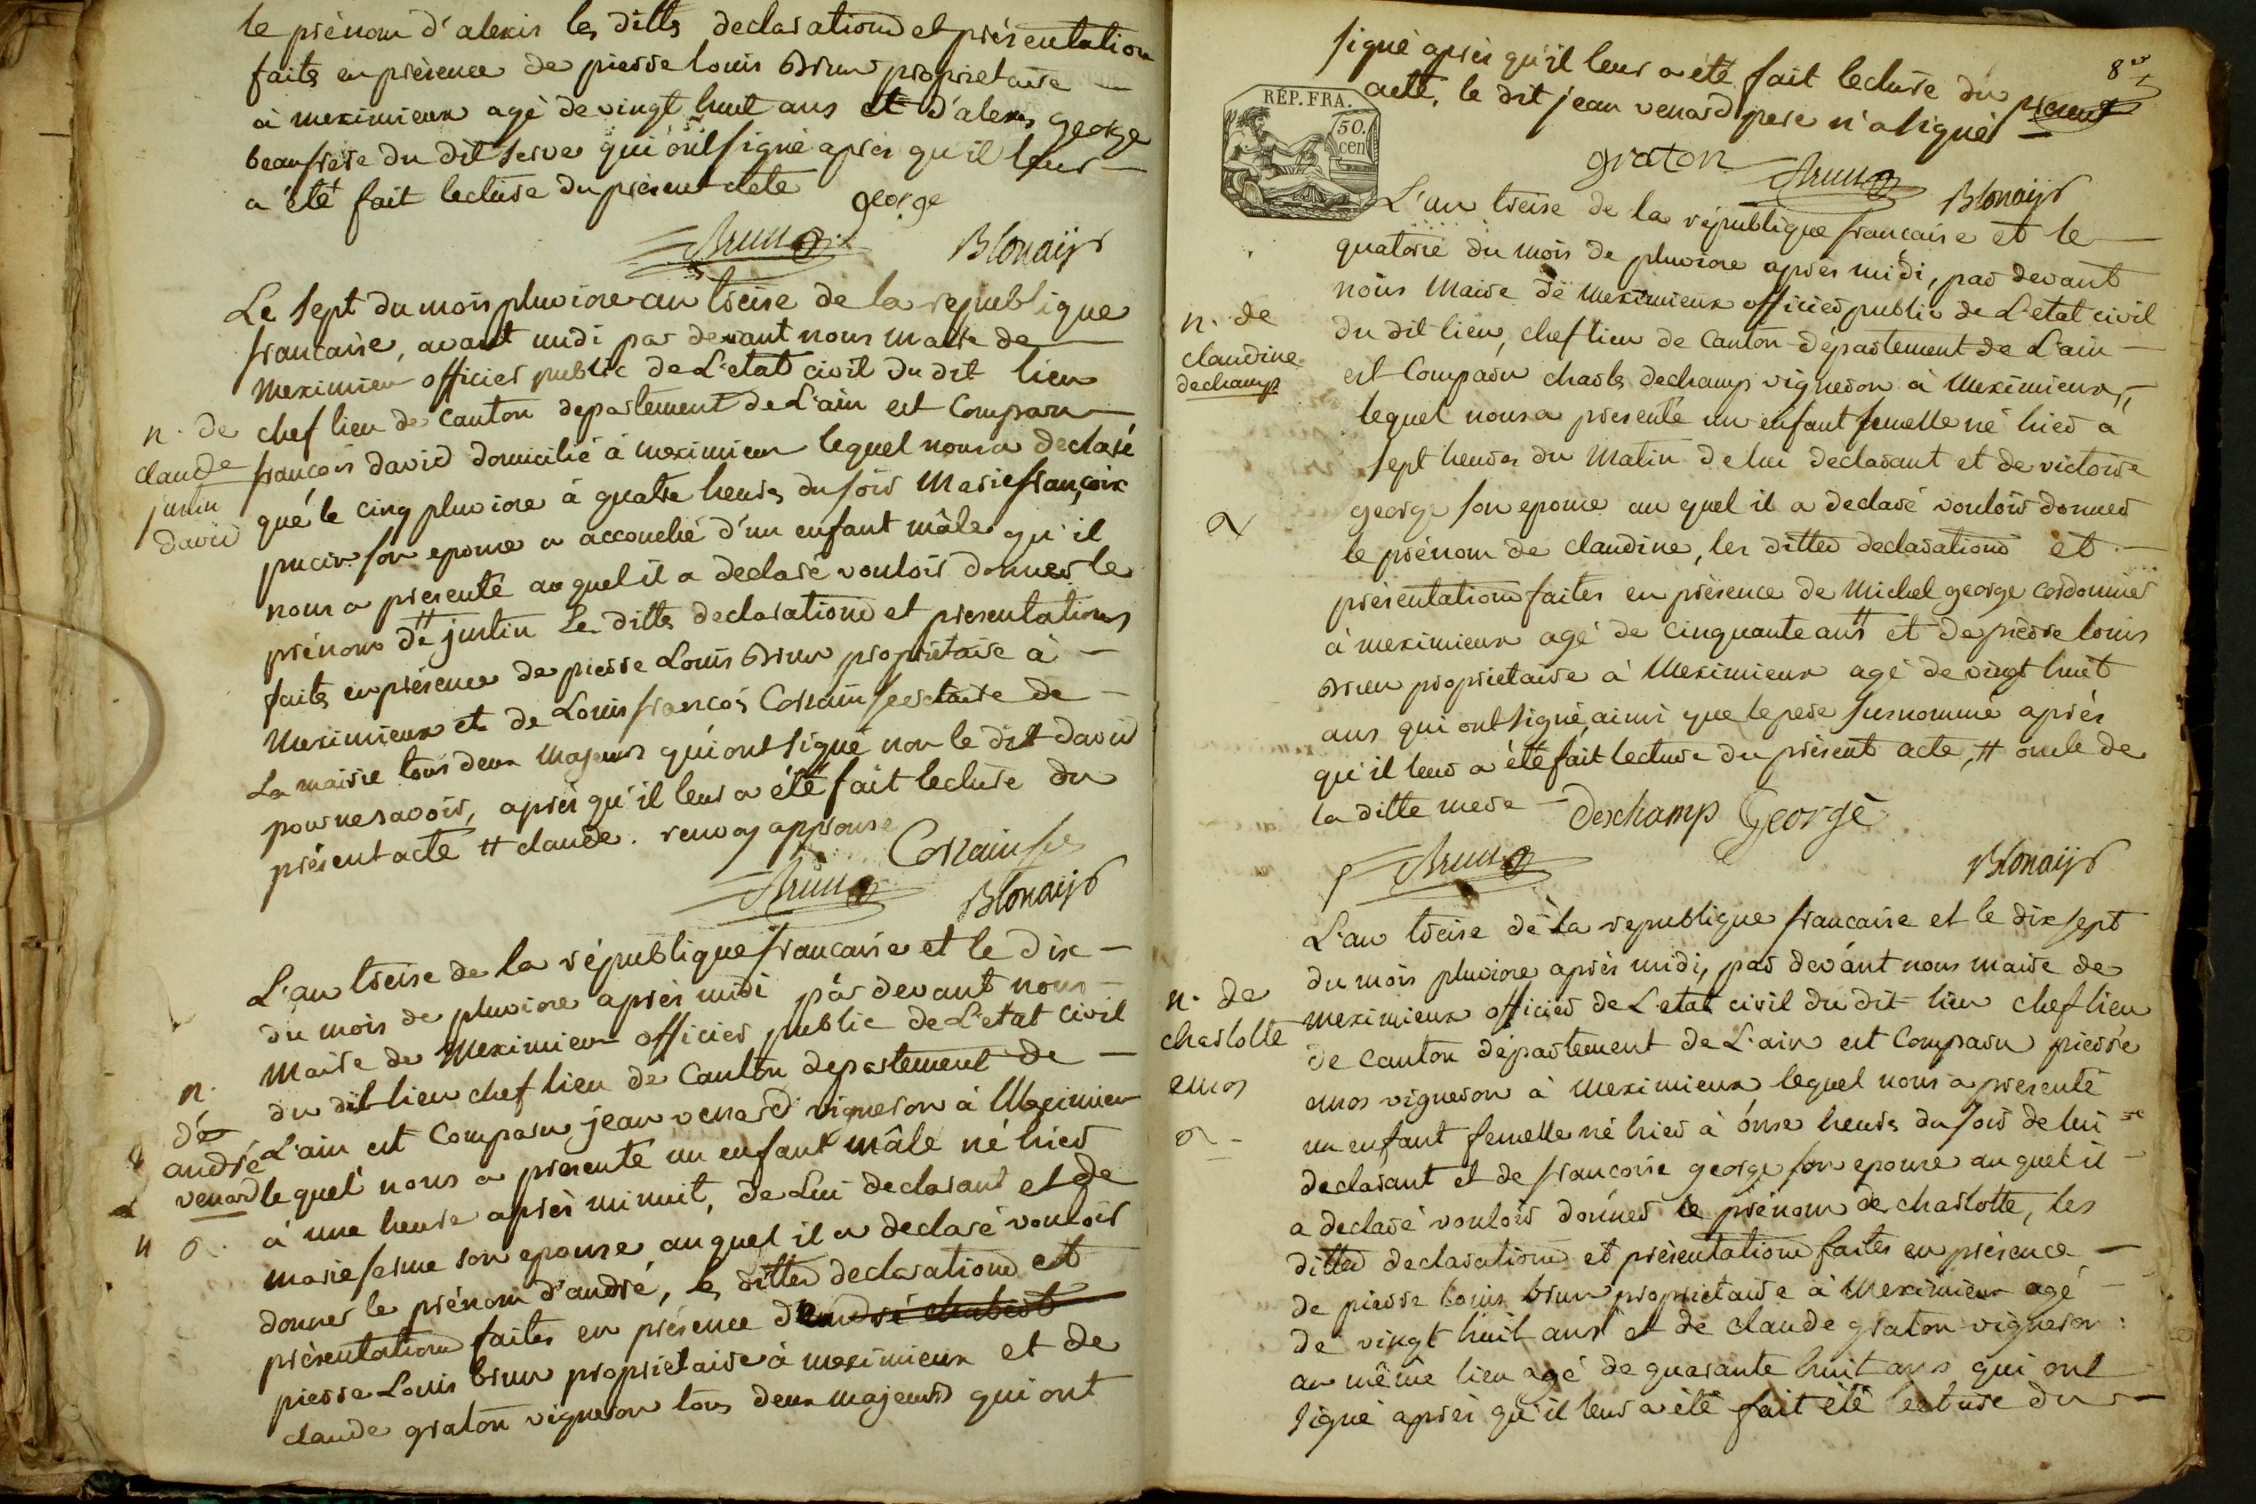 le prénom d'alexis les dittes declarations et présentation
faites en présence de pierre louis Brun proprietaire
à meximieux agé de vingt huit ans et d'alexis george
beaufrère du dit serve qui ont signé après qu'il leur
a été fait lecture du présent acte
george
Brun
Blonay
Le sept du mois pluviose an treise de la republique
francaise, avant midi par devant nous maire de
Meximieux officier public de L'etat civil du dit lieu
chef lieu de canton departement de L'ain est Comparu
françois david domicilié à meximieux lequel nous a declaré
que le cinq pluviose à quatre heures du soir Marie françoise
son epouse a accouché d'un enfant mâle qu'il
nous a presenté auquel il a declaré vouloir donner le
prénom de # justin Les dittes declarations et presentations
faites en présence de pierre Louis Brun propriétaire à
Meximieux et de Louis françois Corrain secretaire de
La mairie tous deux Majeurs qui ont signé non le dit david
pour ne savoir, après qu'il leur a été fait lecture du
présent acte # claude. renvoy approuvé
Corrain
Brun
Blonay
n. de
claude
justin
david
L'an treise de la république francaise et le dix
du mois de pluviose après midi par devant nous
Maire de Meximieux officier public de L'etat civil
du dit lieu chef lieu de Canton departement de
L'ain est Comparu jean venard vigneron à Meximieux
lequel nous a presenté un enfant mâle né hier
à une heure après minuit, de Lui declarant et de
marie serme son epouse auquel il a declaré vouloir
donner le prénom d'andré, les dittes declarations et
présentations faites en présence de
pierre Louis brun proprietaire à meximieux et de
claude graton vigneron tous deux majeurs qui ont
n.
de
andré
venard
8
signé après qu'il leur a été fait lecture du présent
acte, le dit jean venard pere n'a signé
RÉP. FRA.
50.
cen
graton
Brun
Blonay
L'an treise de la république francaise et le
quatorse du mois de pluviose après midi, par devant
nous Maire de Meximieux officier public de L'etat civil
du dit lieu, chef lieu de Canton département de L'ain
est Comparu charles dechamp vigneron à Meximieux,
lequel nous a presenté un enfant femelle né hier à
sept heures du Matin de lui declarant et de victoire
george son epouse au quel il a declaré vouloir donner
le prénom de claudine, les dittes declarations et
présentations faites en présence de Michel george cordonnier
à meximieux agé de cinquante ans # et de pierre louis
Brun proprietaire à Meximieux agé de vingt huit
ans qui ont signé, ainsi que le pere susnommé après
qu'il leur a été fait lecture du présent acte, # oncle de
la ditte mere
deschamp George
Brun
Blonay
n. de
claudine
dechamp
L'an treise de la republique francaise et le dix sept
du mois pluviose après midi, par devant nous maire de
meximieux officier de L'etat civil du dit lieu chef lieu
de canton département de L'ain est Comparu pierre
emos vigneron à meximieux lequel nous a presenté
un enfant femelle né hier à onse heures du soir de lui
declarant et de francoise george son epouse auquel il
a declaré vouloir donner le prénom de charlotte, les
dittes declarations et présentations faites en présence
de pierre louis brun proprietaire à Meximieux agé
de vingt huit ans et de claude graton vigneron
au même lieu agé de quarante huit ans qui ont
signé après qu'il leur a été fait été lecture du
n. de
charlotte
emos